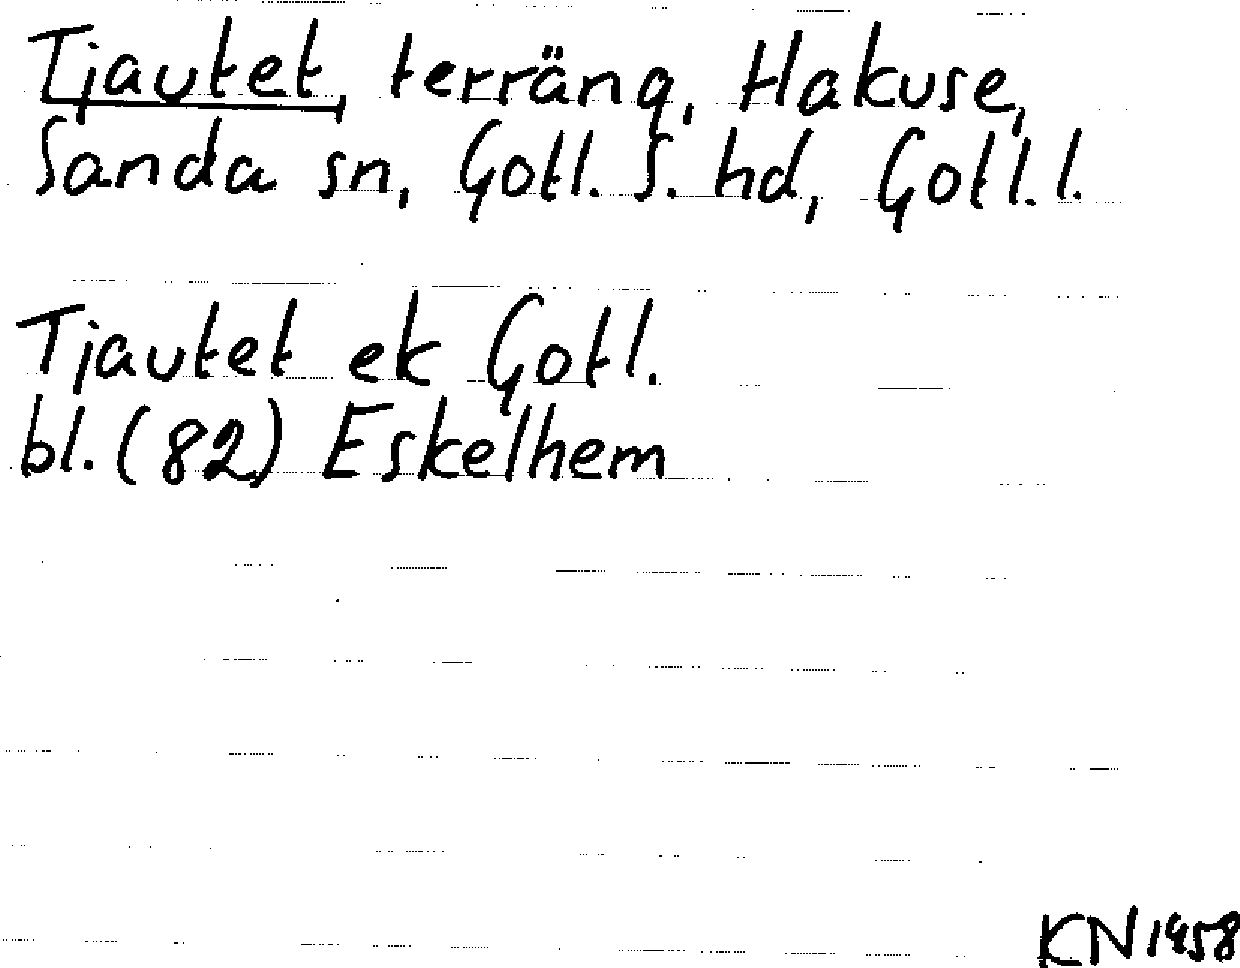 Tjautet, terräng, Hakuse,
Sanda sn, Gotl. S. hd, Gotl. l.
Tjautet ek Gotl.
bl. (82) Eskelhem
KN 1958